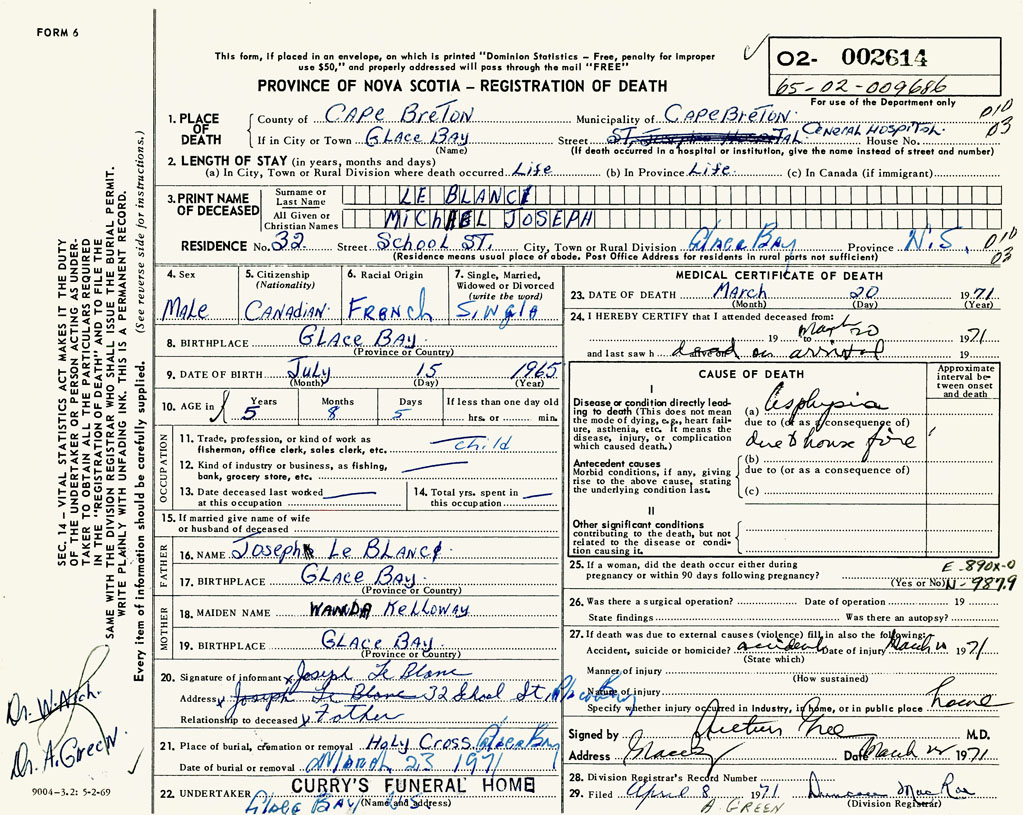 FORM 6
This form, if placed in an envelope, on which is printed "Dominion Statistics – Free, penalty for improper
use $50," and properly addressed will pass through the mail "FREE"
O2- 002614
65-02-009686
For use of the Department only
PROVINCE OF NOVA SCOTIA – REGISTRATION OF DEATH
1. PLACE OF DEATH
County of CAPE BRETON Municipality of CAPE BRETON
If in City or Town GLACE BAY Street ST. GENERAL HOSPITAL House No.
(Name) (If death occurred in a hospital or institution, give the name instead of street and number)
2. LENGTH OF STAY (in years, months and days)
(a) In City, Town or Rural Division where death occurred Life (b) In Province Life (c) In Canada (if immigrant)
3. PRINT NAME OF DECEASED
Surname or Last Name LE BLANC
All Given or Christian Names MICHAEL JOSEPH
RESIDENCE No. 32 Street School ST. City, Town or Rural Division Glace Bay Province N.S.
(Residence means usual place of abode. Post Office Address for residents in rural parts not sufficient)
4. Sex
MALE
5. Citizenship
(Nationality)
CANADIAN
6. Racial Origin
FRENCH
7. Single, Married,
Widowed or Divorced
(write the word)
SINGLE
8. BIRTHPLACE GLACE BAY
(Province or Country)
9. DATE OF BIRTH July 15 1965
(Month) (Day) (Year)
10. AGE in Years Months Days If less than one day old
5 8 5 hrs. or min.
OCCUPATION
11. Trade, profession, or kind of work as
fisherman, office clerk, sales clerk, etc. child
12. Kind of industry or business, as fishing,
bank, grocery store, etc.
13. Date deceased last worked
at this occupation
14. Total yrs. spent in
this occupation
15. If married give name of wife
or husband of deceased
FATHER
16. NAME Joseph Le BLANC
17. BIRTHPLACE GLACE BAY
(Province or Country)
MOTHER
18. MAIDEN NAME WANDA Kelloway
19. BIRTHPLACE GLACE BAY
(Province or Country)
20. Signature of informant x Joseph Le Blanc
Address x Joseph Le Blanc 32 School St Glace Bay
Relationship to deceased x Father
21. Place of burial, cremation or removal Holy Cross Glace Bay
Date of burial or removal March 23 1971
22. UNDERTAKER CURRY'S FUNERAL HOME
(Name and address)
GLACE BAY N.S.
MEDICAL CERTIFICATE OF DEATH
23. DATE OF DEATH March 20 1971
(Month) (Day) (Year)
24. I HEREBY CERTIFY that I attended deceased from:
19 to March 20 1971
and last saw h dead on arrival 19
CAUSE OF DEATH
Approximate interval between onset and death
I
Disease or condition directly leading to death (This does not mean the mode of dying, e.g., heart failure, asthenia, etc. It means the disease, injury, or complication which caused death.)
(a) Asphyxia
due to (or as a consequence of)
due to house fire
Antecedent causes
Morbid conditions, if any, giving rise to the above cause, stating the underlying condition last.
(b)
due to (or as a consequence of)
(c)
II
Other significant conditions
contributing to the death, but not related to the disease or condition causing it.
25. If a woman, did the death occur either during
pregnancy or within 90 days following pregnancy?
(Yes or No)
E-890X-0
N-987.9
26. Was there a surgical operation? Date of operation 19
State findings Was there an autopsy?
27. If death was due to external causes (violence) fill in also the following:
Accident, suicide or homicide? accident Date of injury March 20 1971
(State which)
Manner of injury
(How sustained)
Nature of injury
Specify whether injury occurred in industry, in home, or in public place home
Signed by M.D.
Address Date March 1971
28. Division Registrar's Record Number
29. Filed April 8 1971 Duncan MacRae
(Division Registrar)
A. GREEN
SEC. 14 – VITAL STATISTICS ACT MAKES IT THE DUTY
OF THE UNDERTAKER OR PERSON ACTING AS UNDER-
TAKER TO OBTAIN ALL THE PARTICULARS REQUIRED
IN THE "REGISTRATION OF DEATH" AND TO FILE THE
SAME WITH THE DIVISION REGISTRAR WHO SHALL ISSUE THE BURIAL PERMIT.
WRITE PLAINLY WITH UNFADING INK. THIS IS A PERMANENT RECORD.
Every item of information should be carefully supplied. (See reverse side for instructions.)
Dr. A. Green
9004-3.2: 5-2-69